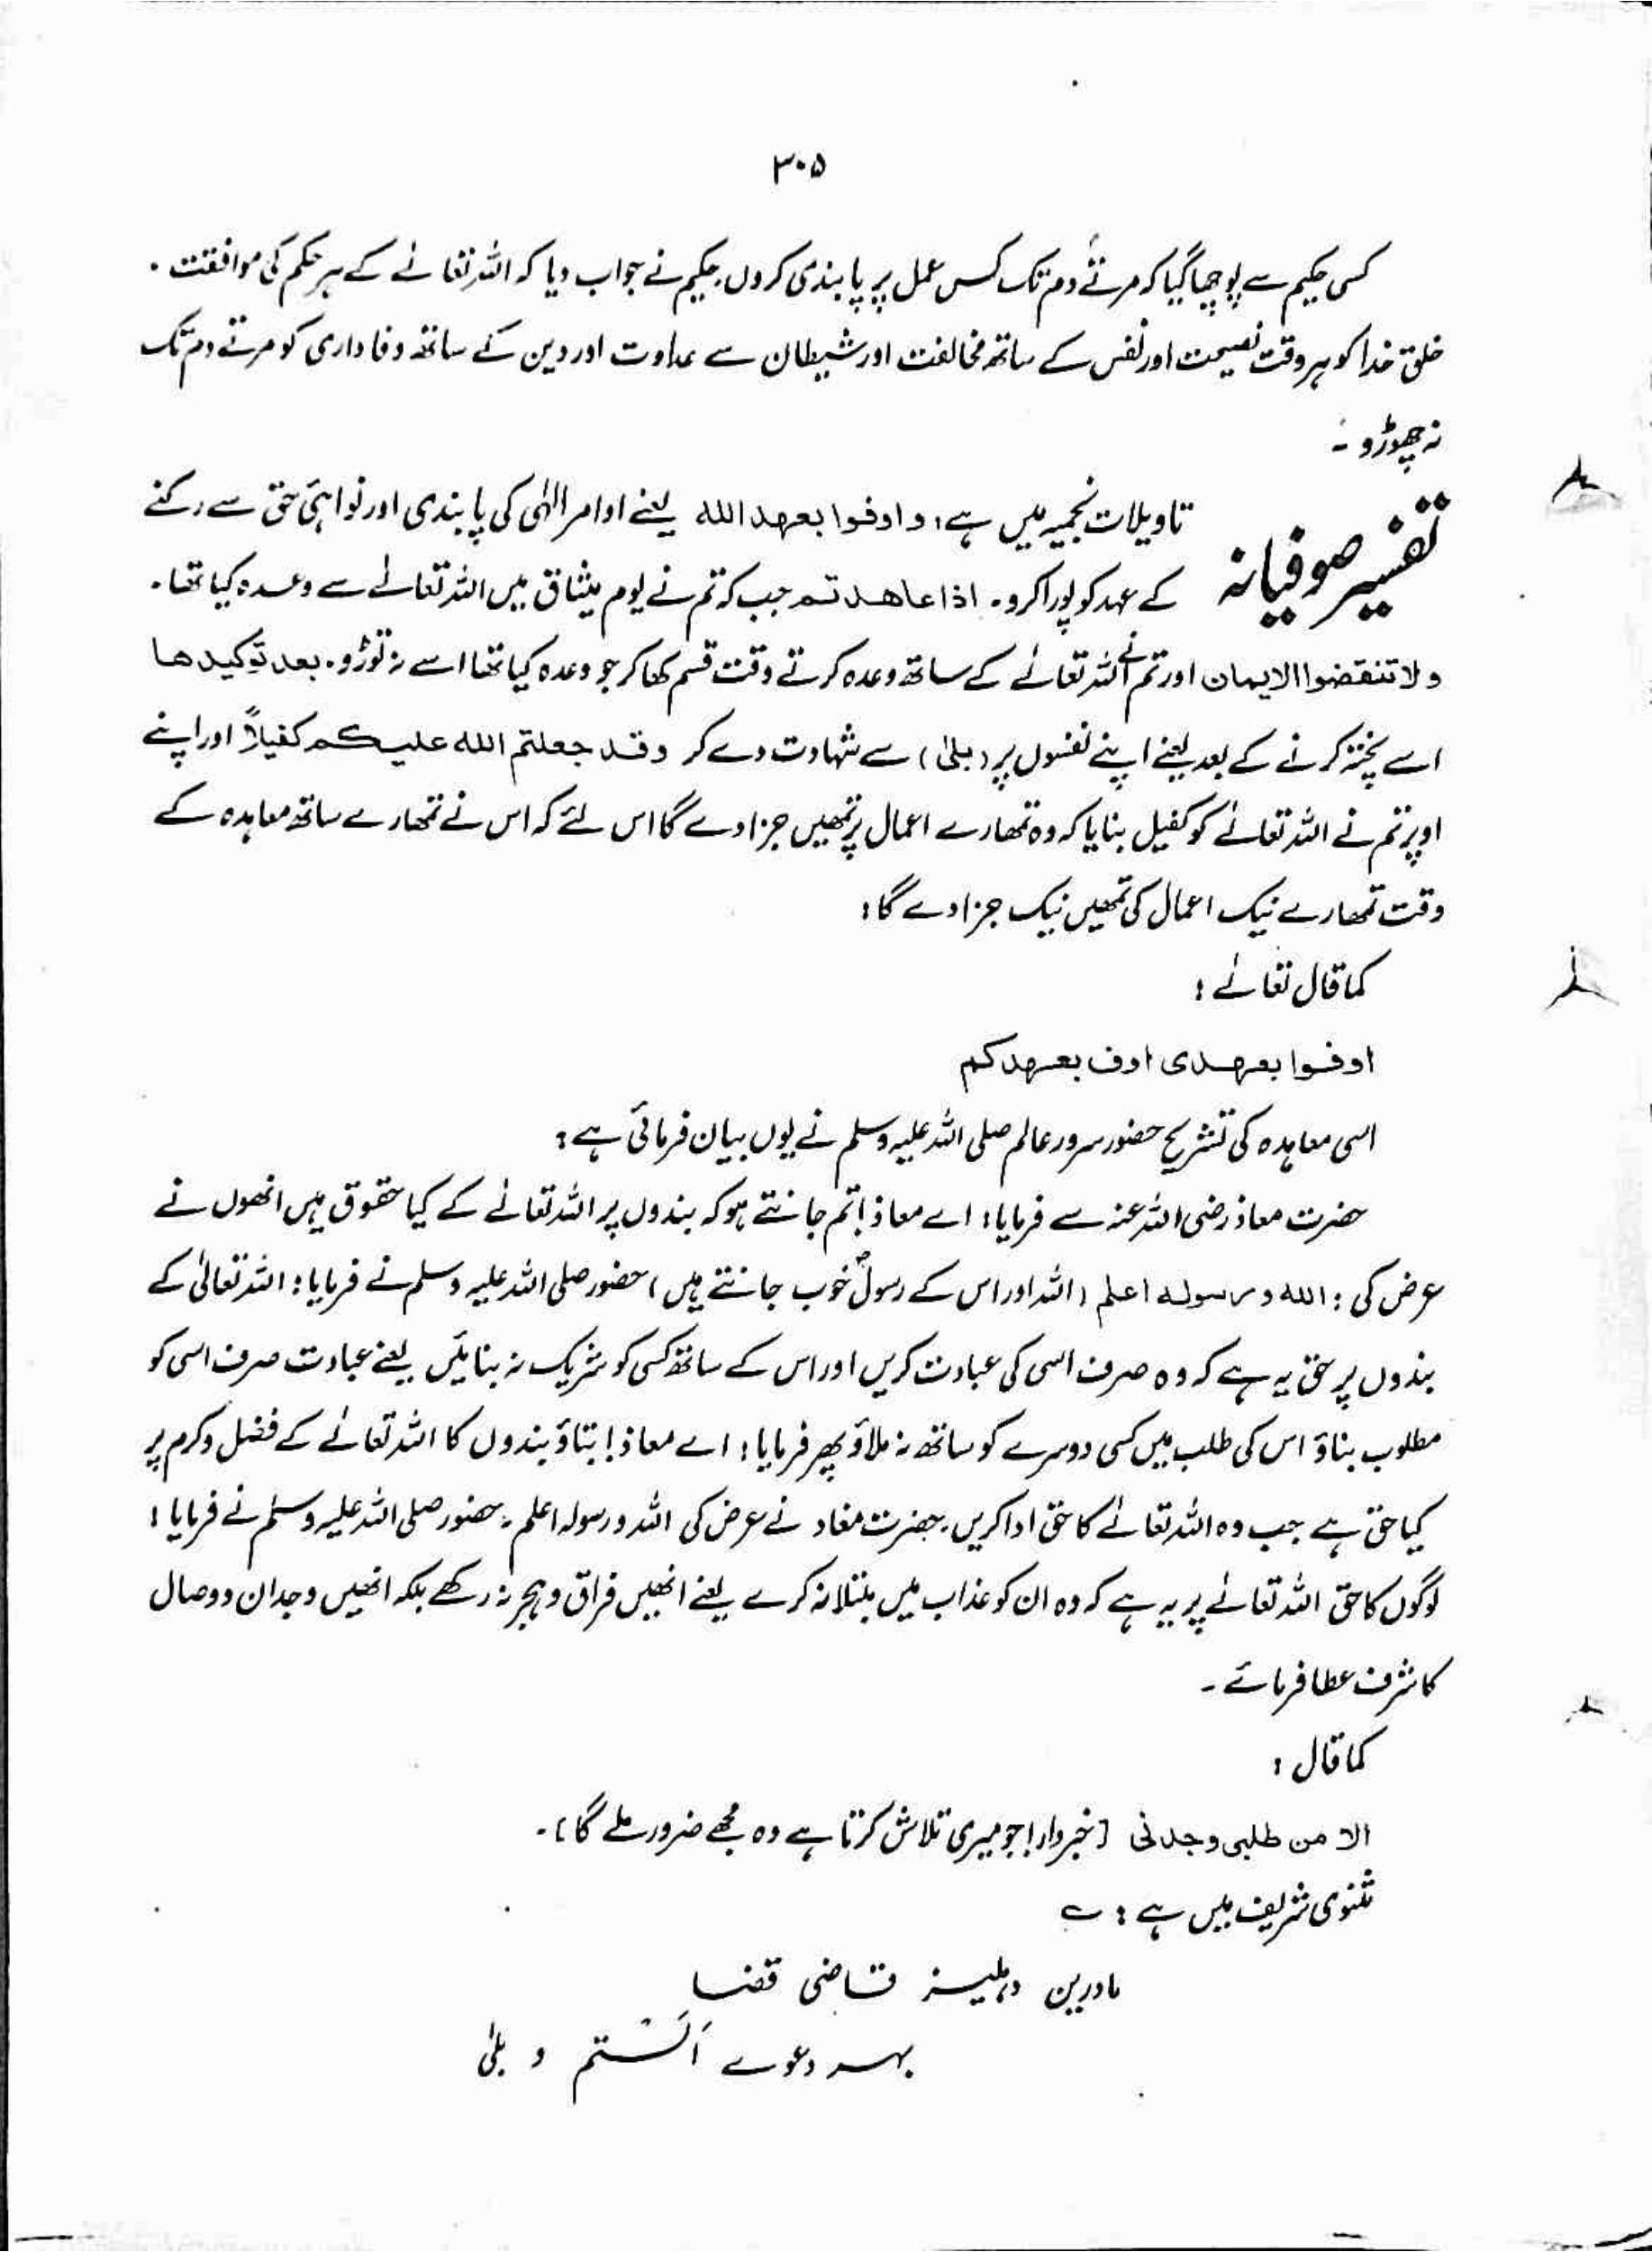 ۳۰۵
کسی حکیم سے پوچھا گیا کہ مرتے دم تک کس عمل پر پابندی کروں۔ حکیم نے جواب دیا کہ اللہ تعالےٰ کے ہر حکم کی موافقت ۔
خلق خدا کو ہر وقت نصیحت اور نفس کے ساتھ مخالفت اور شیطان سے عداوت اور دین کے ساتھ وفاداری کو مرتے دم تک
نہ چھوڑو ۔
تفسیر صوفیانہ
تاویلات نجمیہ میں ہے، و اوفوا بعہد اللہ یعنے اوامر الٰہی کی پابندی اور نواہئ حق سے رکنے
کے عہد کو پورا کرو۔ اذا عاھدتم جب کہ تم نے یوم میثاق میں اللہ تعالےٰ سے وعدہ کیا تھا۔
و لا تنقضوا الایمان اور تم نے اللہ تعالےٰ کے ساتھ وعدہ کرتے وقت قسم کھا کر جو وعدہ کیا تھا اسے نہ توڑو۔ بعد توکیدھا
اسے پختہ کرنے کے بعد یعنے اپنے نفسوں پر (بلیٰ) سے شہادت دے کر وقد جعلتم اللہ علیکم کفیلاً اور اپنے
اوپر تم نے اللہ تعالےٰ کو کفیل بنایا کہ وہ تمھارے اعمال پر تمھیں جزا دے گا اس لئے کہ اس نے تمھارے ساتھ معاہدہ کے
وقت تمھارے نیک اعمال کی تمھیں نیک جزا دے گا؛
کما قال تعالےٰ :
اوفوا بعہدی اوف بعہدکم
اسی معاہدہ کی تشریح حضور سرور عالم صلی اللہ علیہ وسلم نے یوں بیان فرمائی ہے :
حضرت معاذ رضی اللہ عنہ سے فرمایا؛ اے معاذ! تم جانتے ہو کہ بندوں پر اللہ تعالےٰ کے کیا حقوق ہیں انھوں نے
عرض کی : اللہ و رسولہ اعلم (اللہ اور اس کے رسولؐ خوب جانتے ہیں) حضور صلی اللہ علیہ وسلم نے فرمایا: اللہ تعالیٰ کے
بندوں پر حق یہ ہے کہ وہ صرف اسی کی عبادت کریں اور اس کے ساتھ کسی کو شریک نہ بنائیں یعنے عبادت صرف اسی کو
مطلوب بناؤ اس کی طلب میں کسی دوسرے کو ساتھ نہ ملاؤ پھر فرمایا: اے معاذ! بتاؤ بندوں کا اللہ تعالےٰ کے فضل و کرم پر
کیا حق ہے جب وہ اللہ تعالےٰ کا حق ادا کریں۔ حضرت معاد نے عرض کی اللہ و رسولہ اعلم۔ حضور صلی اللہ علیہ وسلم نے فرمایا :
لوگوں کا حق اللہ تعالےٰ پر یہ ہے کہ وہ ان کو عذاب میں مبتلا نہ کرے یعنے انھیں فراق و ہجر نہ رکھے بلکہ انھیں وجدان و وصال
کا شرف عطا فرمائے ۔
کما قال :
الا من طلبی وجدنی [خبردار! جو میری تلاش کرتا ہے وہ مجھے ضرور ملے گا)۔
مثنوی شریف میں ہے : ؎
ما درین دہلیز قاضی قضا
بہر دعوے اَلَسْتم و بلیٰ